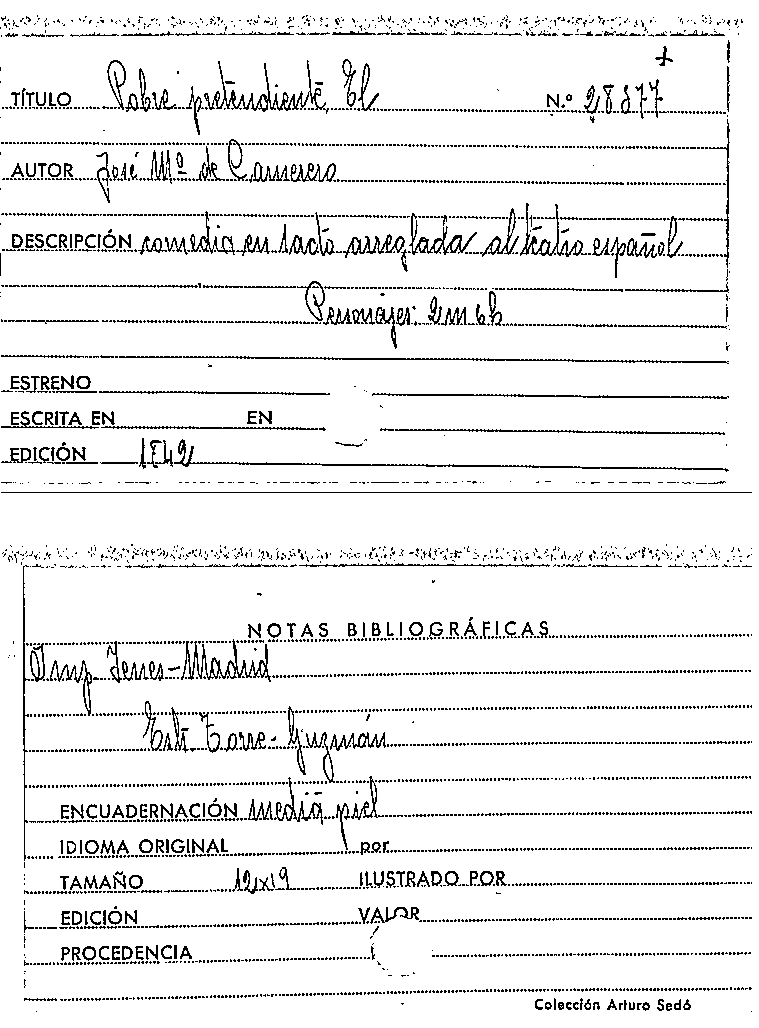 +
TÍTULO Pobre pretendiente, El N.º 28877
AUTOR José Mª de Carnerero
DESCRIPCIÓN comedia en 1 acto arreglada al teatro español
Personajes: 2 m 6 h
ESTRENO
ESCRITA EN EN
EDICIÓN 1842
NOTAS BIBLIOGRÁFICAS
Imp. Yenes - Madrid
Torre - Guzmán
ENCUADERNACIÓN media piel
IDIOMA ORIGINAL por
TAMAÑO 12x19 ILUSTRADO POR
EDICIÓN VALOR
PROCEDENCIA
Colección Arturo Sedó